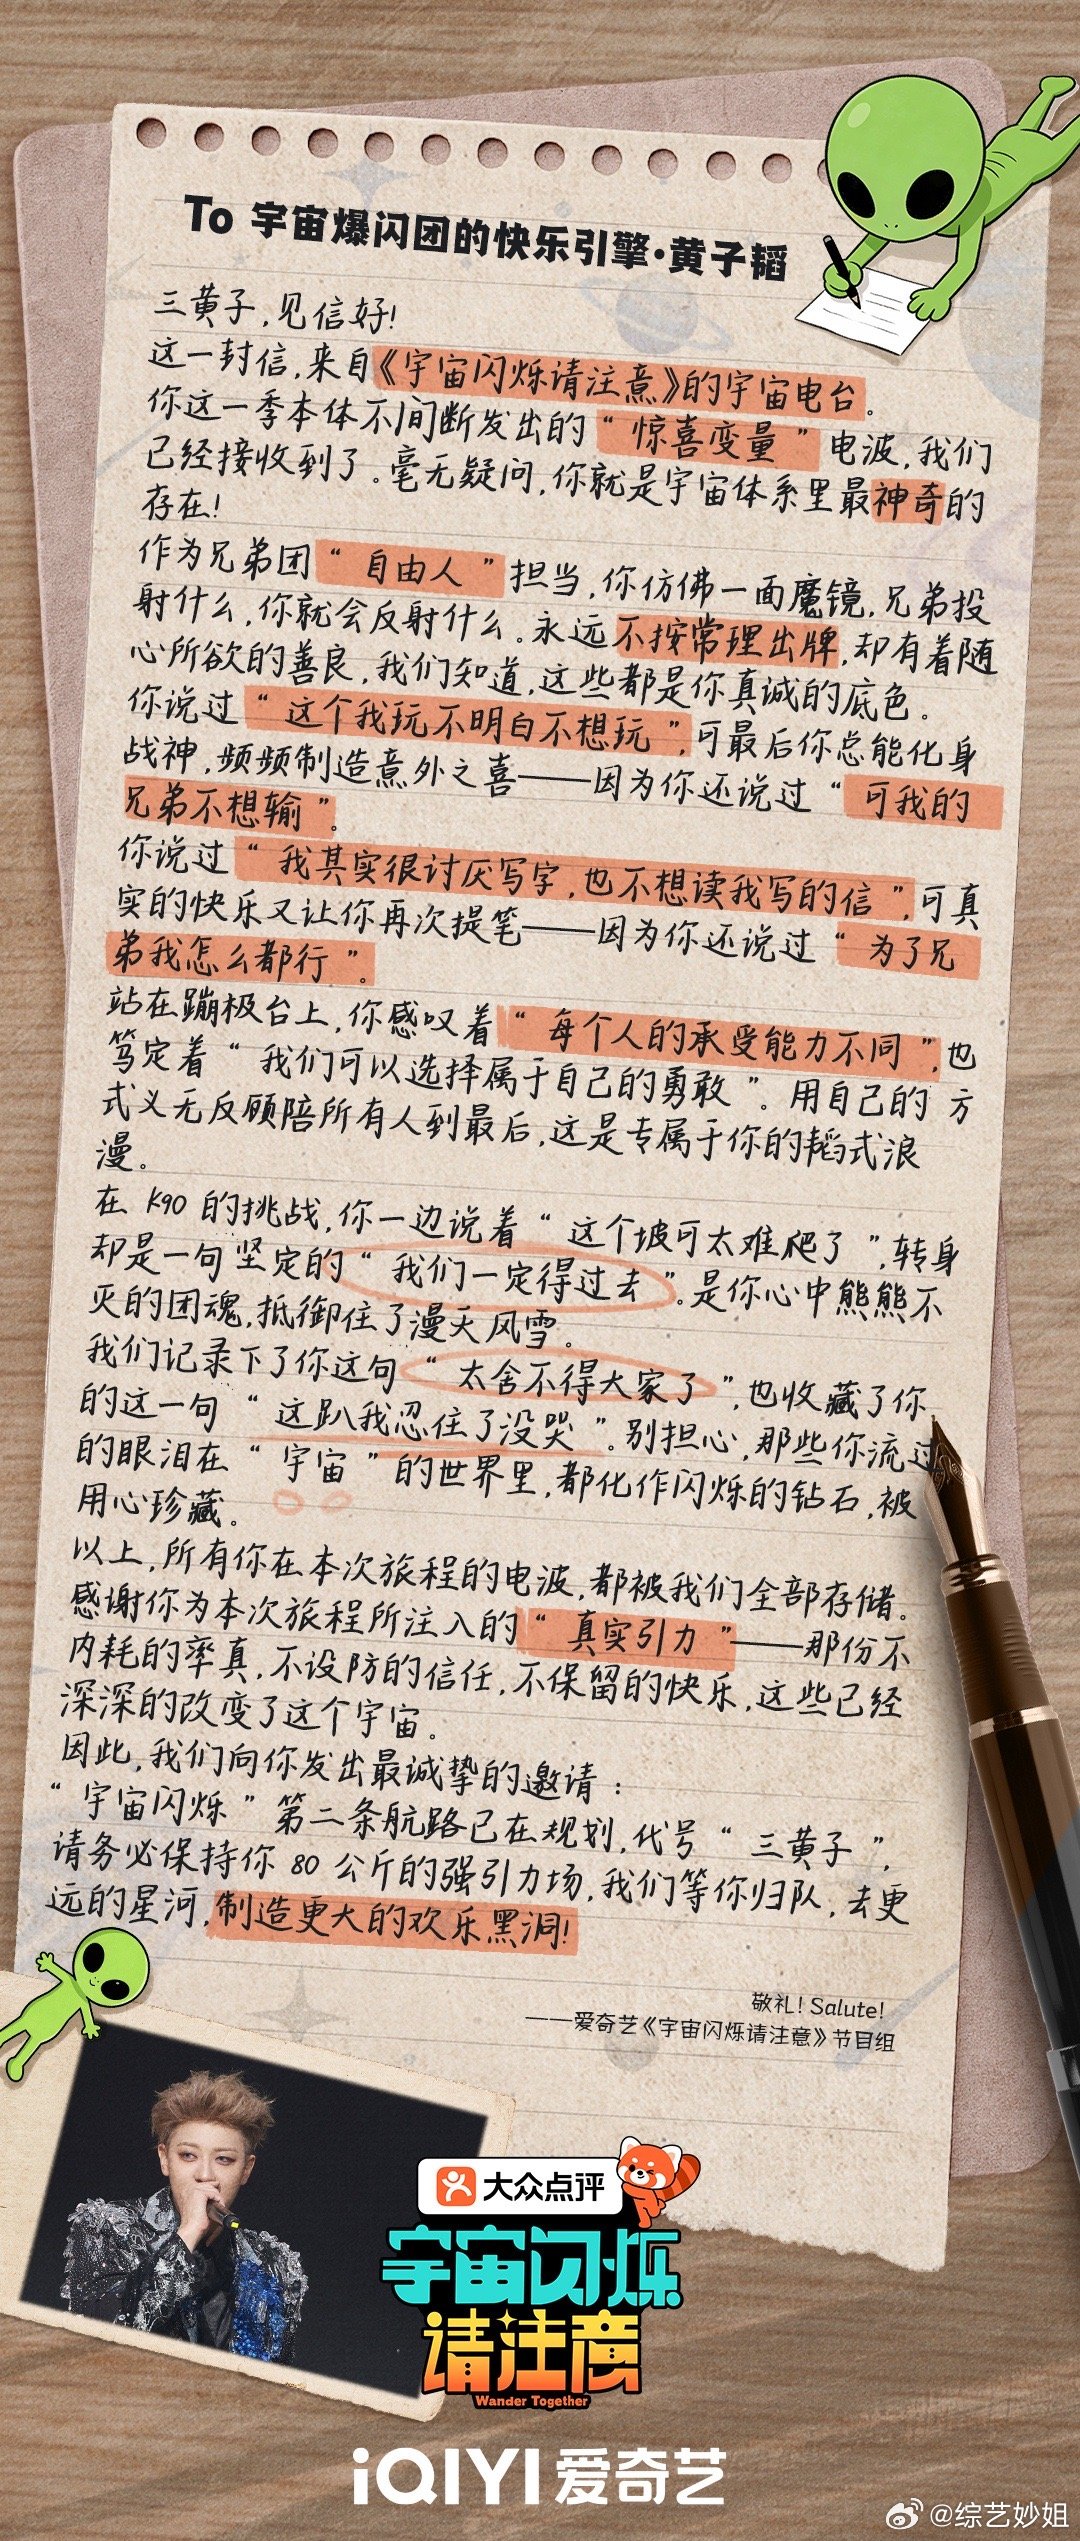 To 宇宙爆闪团的快乐引擎·黄子韬
三黄子，见信好！
这一封信，来自《宇宙闪烁请注意》的宇宙电台。
你这一季本体不间断发出的“惊喜变量”电波，我们
已经接收到了。毫无疑问，你就是宇宙体系里最神奇的
存在！
作为兄弟团“自由人”担当，你仿佛一面魔镜，兄弟投
射什么，你就会反射什么。永远不按常理出牌，却有着随
心所欲的善良，我们知道，这些都是你真诚的底色。
你说过“这个我玩不明白不想玩”，可最后你总能化身
战神，频频制造意外之喜——因为你还说过“可我的
兄弟不想输”。
你说过“我其实很讨厌写字，也不想读我写的信”，可真
实的快乐又让你再次提笔——因为你还说过“为了兄
弟我怎么都行”。
站在蹦极台上，你感叹着“每个人的承受能力不同”，也
笃定着“我们可以选择属于自己的勇敢”。用自己的方
式义无反顾陪所有人到最后，这是专属于你的韬式浪
漫。
在K90的挑战，你一边说着“这个坡可太难爬了”，转身
却是一句坚定的“我们一定得过去”。是你心中熊熊不
灭的团魂，抵御住了漫天风雪。
我们记录下了你这句“太舍不得大家了”，也收藏了你
的这一句“这趴我忍住了没哭”。别担心，那些你流过
的眼泪在“宇宙”的世界里，都化作闪烁的钻石，被
用心珍藏。
以上，所有你在本次旅程的电波，都被我们全部存储。
感谢你为本次旅程所注入的“真实引力”——那份不
内耗的率真，不设防的信任，不保留的快乐，这些已经
深深的改变了这个宇宙。
因此，我们向你发出最诚挚的邀请：
“宇宙闪烁”第二条航路已在规划，代号“三黄子”，
请务必保持你80公斤的强引力场，我们等你归队，去更
远的星河，制造更大的欢乐黑洞！
敬礼！Salute！
——爱奇艺《宇宙闪烁请注意》节目组
大众点评
宇宙闪烁
请注意
Wander Together
iQIYI 爱奇艺
@综艺妙姐